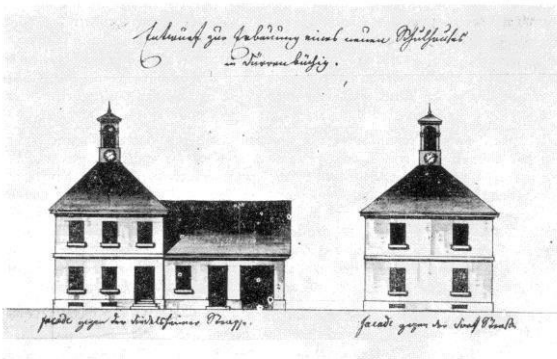 Entwurf zur Erbauung eines neuen Schulhauses
in Dürrenbüchig.
Facade gegen der Diedelsheimer Strasse.
facade gegen der Dorf Straße